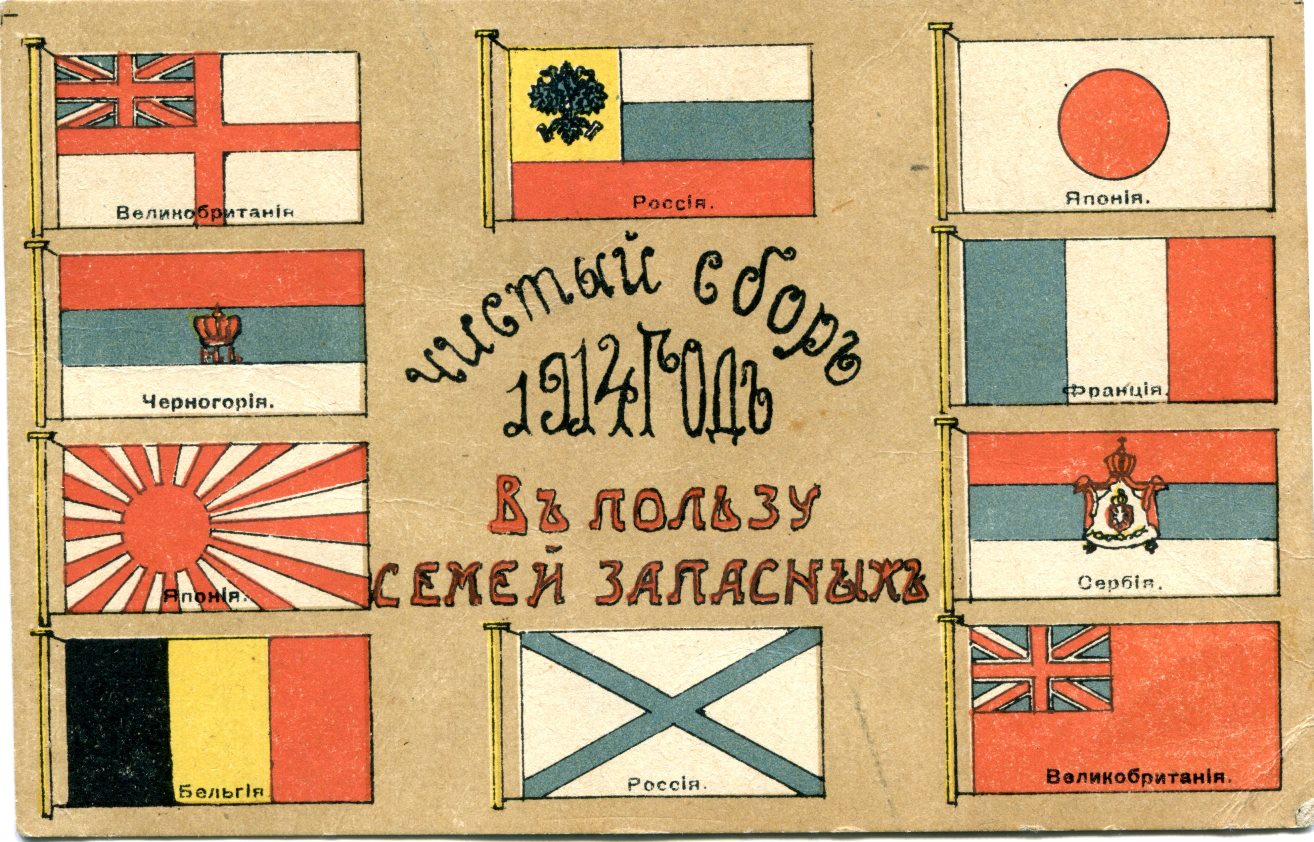 Великобританія
Россія.
Японія.
Черногорія.
Чистый сборъ
1914 годъ
Франція.
Японія.
въ пользу
семей запасныхъ
Сербія.
Бельгія
Россія.
Великобританія.